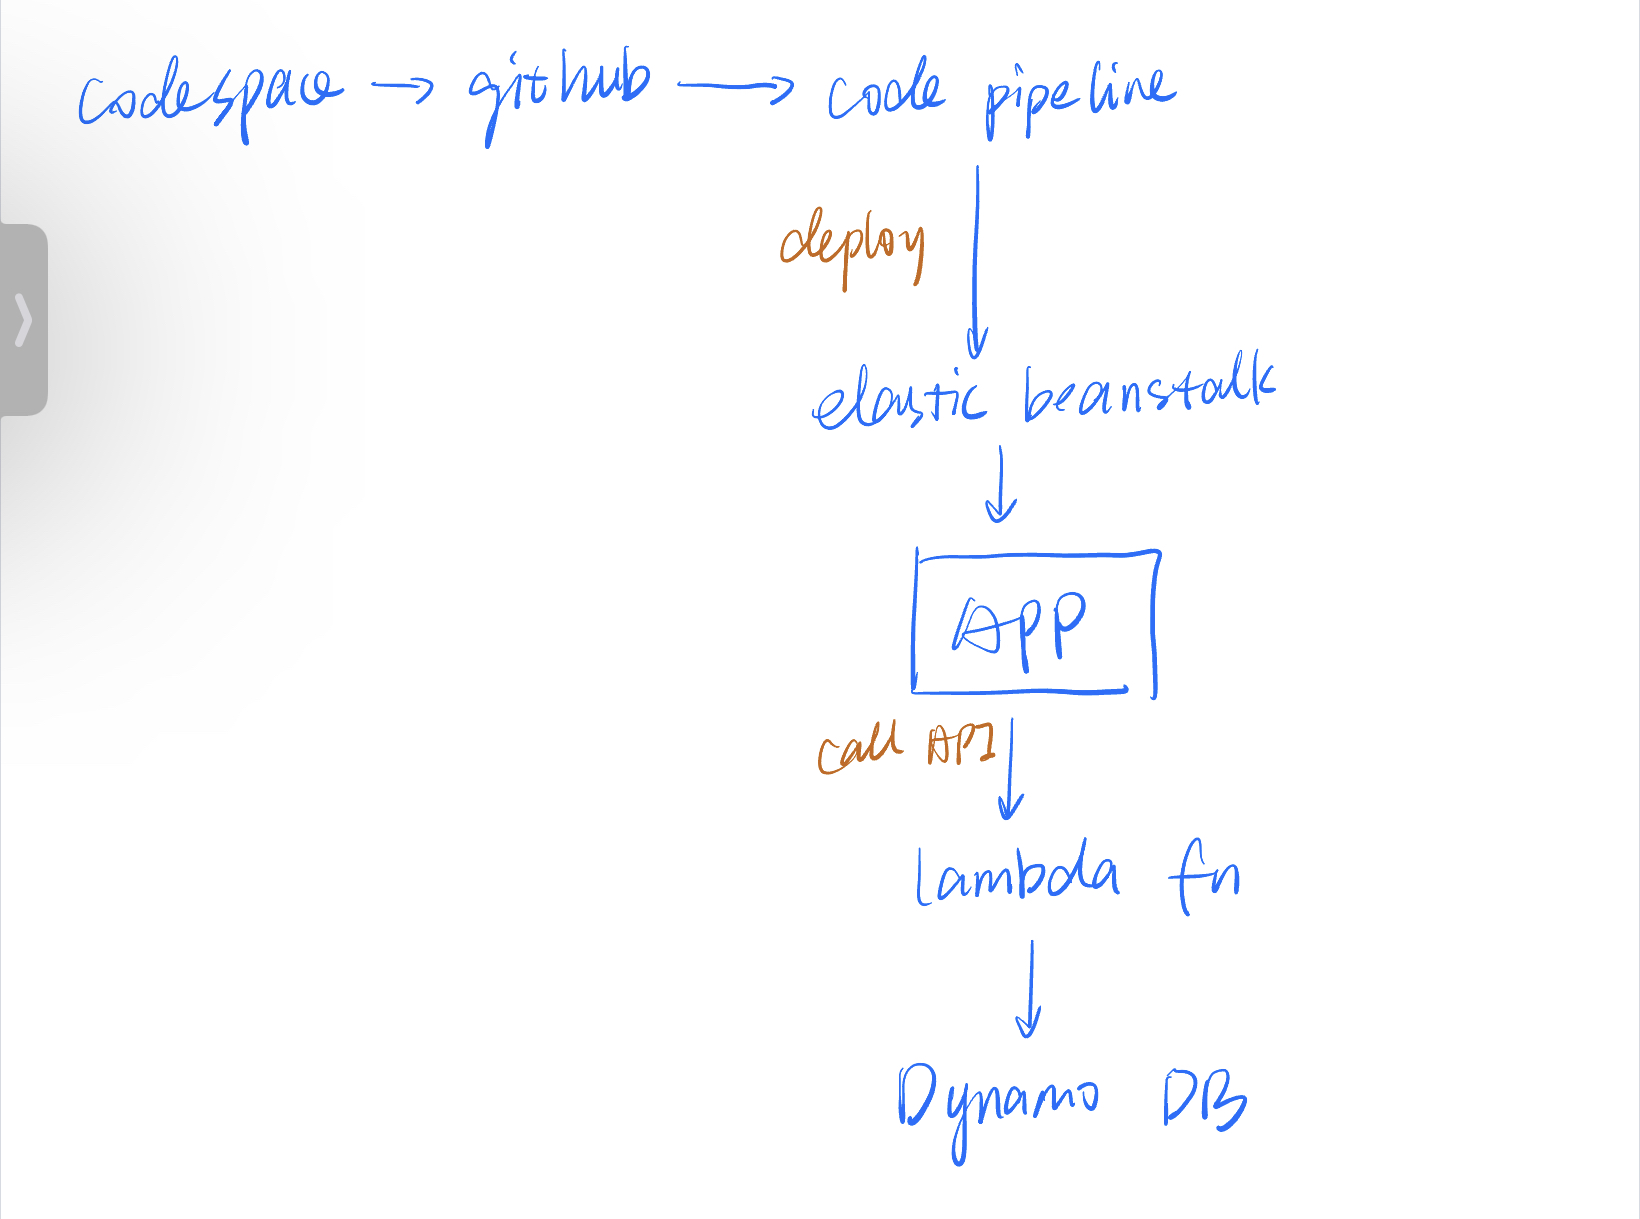 codespace → github → code pipeline
deploy
elastic beanstalk
APP
call API
Lambda fn
Dynamo DB